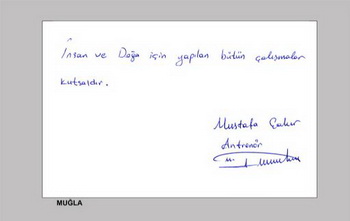 İnsan ve Doğa için yapılan bütün çalışmalar
kutsaldır.
Mustafa Çakır
Antrenör
MUĞLA